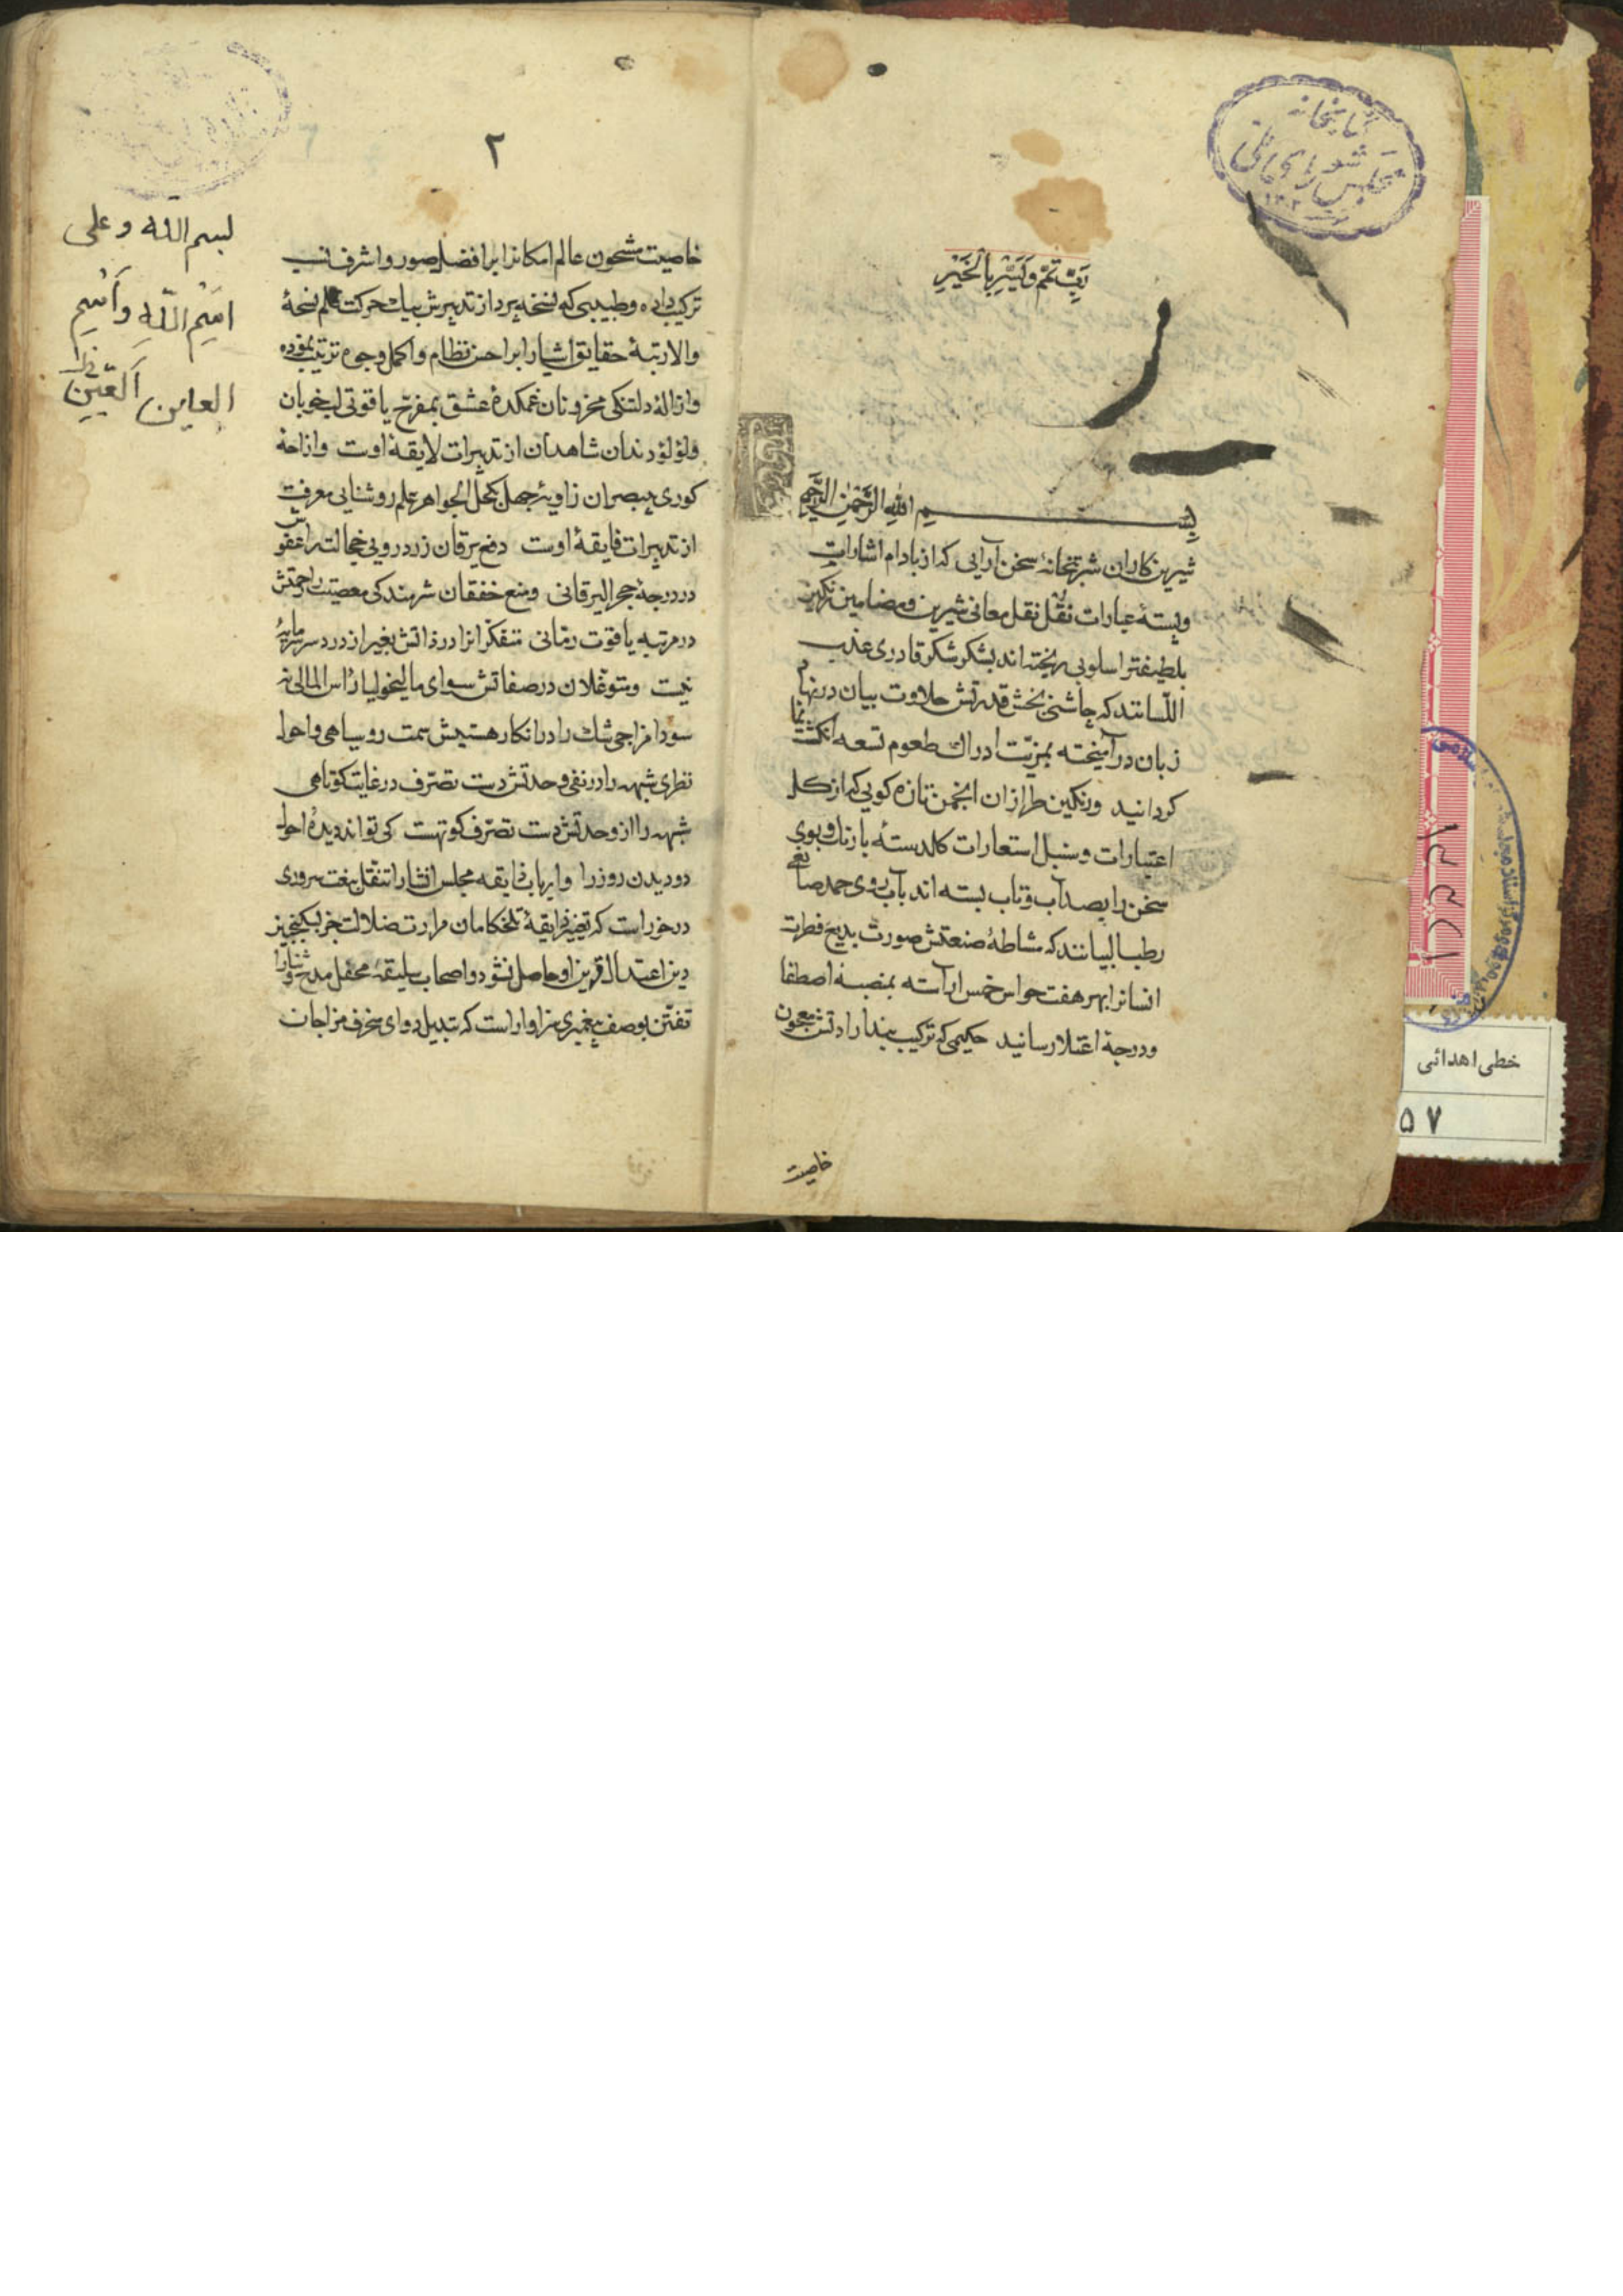 کتابخانه
مجلس شورای ملی
۱۳۰۲
رَبِّ تَمِّمْ وَيَسِّرْ بِالْخَيْرِ
بسم الله الرحمن الرحیم
شیرین کاران شربتخانهٔ سخن آرایی که از بادام اشارات
وپستهٔ عبارات نقل نقل معانی شیرین ومضامین رنکین
بلطیفتر اسلوبی ریخته اند بشکر شکر قادری عذب
اللسانند که چاشنی بخش قدرتش حلاوت بیان در نهام
زبان درآمیخته بمزیّت ادراك طعوم تسعه انکشت نما
کردانید ورنکین طرازان انجمن تازه کویی که از کل
اعتبارات وسنبل استعارات کلدستهٔ بارنك وبوی
سخن را بصد آب وتاب بسته اند بآب روی حمد صانعی
رطب البیانند که مشاطهٔ صنعتش صورت بدیع فطرت
انسانرا بهر هفت حواس خمس آراسته بمنصبهٔ اصطفا
ودرجهٔ اعتلا رسانید حکیمی که ترکیب بند ارادتش معجون
خاصیت
۲
خاصیت مشحون عالم امکانرا بر افضل صور واشرف نسب
ترکیب داده وطبیبی که نسخه پرداز تدبیرش بیك حرکت قلم نسخهٔ
والارتبهٔ حقایق اشیا را بر احسن نظام واکمل وجوه ترتیب نموده
وازالهٔ دلتنکی محزونان غمکدهٔ عشق بمفرح یاقوتی لب خوبان
ولؤلؤ دندان شاهدان از تدبیرات لایقهٔ اوست وازاحهٔ
کوری مبصران زاویهٔ جهل بکحل الجواهر علم روشنایی معرفت
از تدبیرات فایقهٔ اوست دفع یرقان زردرویی خجالت را عفوش
در درجهٔ حجر الیرقانی ومنع خفقان شرمندکی معصیت را رحمتش
در مرتبه یاقوت رمّانی متفکرانرا در ذاتش بغیر از درد سر سرمایهٔ
نیست ومتوغلان در صفاتش سوای مالیخولیا رأس المالی نه
سودا مزاجی شك را در انکار هستیش سمت روسیاهی واحول
نظری شبهه را در نفی وحدتش دست تصرّف در غایت کوتاهی
شبهه را از وحدتش دست تصرّف کوتهست کی تواند دیدهٔ احول
دو دیدن روز را وارباب ذایقه مجلس انشا را تنقل بنعت سروری
درخور است که تغییر ذایقهٔ تلخکامان مرارت ضلالت جز بسکنجبین
دین اعتدال قرین او حاصل نشود واصحاب سلیقهٔ محفل مدح وثنا را
تفتّن بوصف پیغمبری سزاوار است که تبدیل دوای منحرف مزاجان
بسم الله وعلی
اسم الله واسم
خطی اهدائی
۵۷